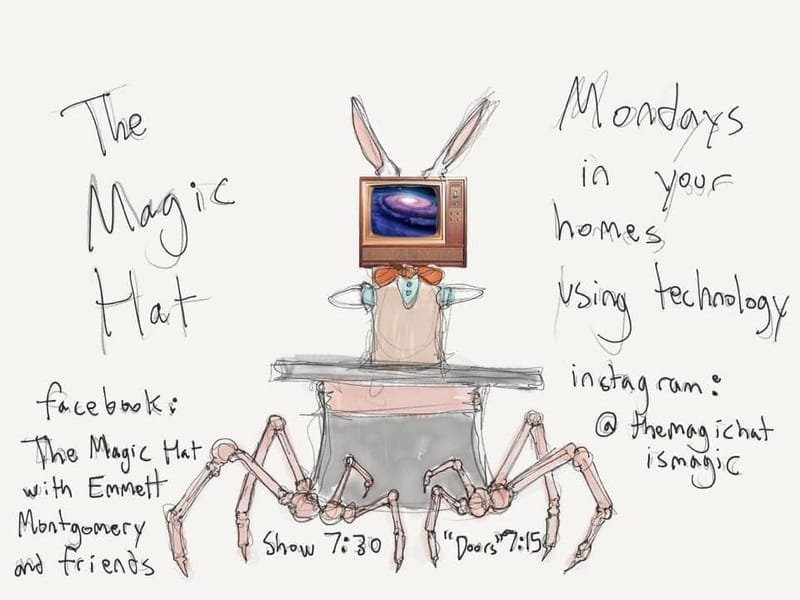 The
Magic
Hat
facebook:
The Magic Hat
with Emmett
Montgomery
and friends
Mondays
in your
homes
using technology
instagram:
@themagichat
ismagic
Show 7:30
"Doors" 7:15